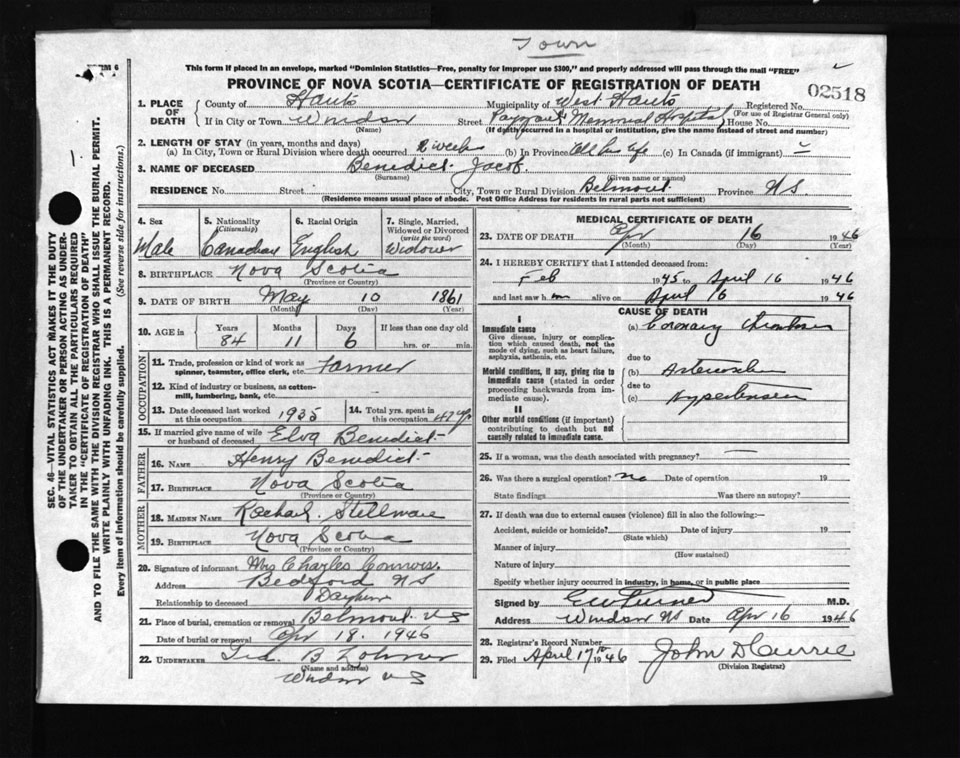 Town
RM 6
This form if placed in an envelope, marked "Dominion Statistics—Free, penalty for improper use $300," and properly addressed will pass through the mail "FREE"
PROVINCE OF NOVA SCOTIA—CERTIFICATE OF REGISTRATION OF DEATH
02518
1. PLACE OF DEATH County of Hants Municipality of West Hants Registered No.
(For use of Registrar General only)
If in City or Town Windsor Street Payzant Memorial Hospital House No.
(Name) (If death occurred in a hospital or institution, give the name instead of street and number)
2. LENGTH OF STAY (in years, months and days)
(a) In City, Town or Rural Division where death occurred weeks (b) In Province All his life (c) In Canada (if immigrant)
3. NAME OF DECEASED Benedict Jacob.
(Surname) (Given name or names)
RESIDENCE No. Street City, Town or Rural Division Belmont Province N.S.
(Residence means usual place of abode. Post Office Address for residents in rural parts not sufficient)
4. Sex Male
5. Nationality (Citizenship) Canadian
6. Racial Origin English
7. Single, Married, Widowed or Divorced (write the word) Widower
8. BIRTHPLACE Nova Scotia
(Province or Country)
9. DATE OF BIRTH May 10 1861
(Month) (Day) (Year)
10. AGE in Years 84 Months 11 Days 6 If less than one day old hrs. or min.
OCCUPATION
11. Trade, profession or kind of work as spinner, teamster, office clerk, etc. Farmer
12. Kind of industry or business, as cotten-mill, lumbering, bank, etc.
13. Date deceased last worked at this occupation 1935
14. Total yrs. spent in this occupation
15. If married give name of wife or husband of deceased Elva Benedict
FATHER
16. NAME Henry Benedict
17. BIRTHPLACE Nova Scotia
(Province or Country)
MOTHER
18. MAIDEN NAME Rachael
19. BIRTHPLACE Nova Scotia
(Province or Country)
20. Signature of informant Mrs Charles Connors.
Address Bedford NS
Relationship to deceased
21. Place of burial, cremation or removal Belmont NS
Date of burial or removal Apr 18. 1946
22. UNDERTAKER
(Name and address)
Windsor N S
MEDICAL CERTIFICATE OF DEATH
23. DATE OF DEATH Apr 16 1946
(Month) (Day) (Year)
24. I HEREBY CERTIFY that I attended deceased from:
Feb 1945 to April 16 1946
and last saw him alive on April 16 1946
CAUSE OF DEATH
I
Immediate cause
Give disease, injury or complication which caused death, not the mode of dying, such as heart failure, asphyxia, asthenia, etc.
(a) Coronary Thrombosis
due to
Morbid conditions, if any, giving rise to immediate cause (stated in order proceeding backwards from immediate cause).
(b)
due to
(c) Hypertension
II
Other morbid conditions (if important) contributing to death but not causally related to immediate cause.
25. If a woman, was the death associated with pregnancy? —
26. Was there a surgical operation? no Date of operation 19
State findings Was there an autopsy?
27. If death was due to external causes (violence) fill in also the following:—
Accident, suicide or homicide? Date of injury 19
(State which)
Manner of injury
(How sustained)
Nature of injury
Specify whether injury occurred in industry, in home, or in public place
Signed by M.D.
Address Windsor NS Date Apr 16 1946
28. Registrar's Record Number
29. Filed April 17th 1946 John D Currie
(Division Registrar)
SEC. 46—VITAL STATISTICS ACT MAKES IT THE DUTY
OF THE UNDERTAKER OR PERSON ACTING AS UNDER-
TAKER TO OBTAIN ALL THE PARTICULARS REQUIRED
IN THE "CERTIFICATE OF REGISTRATION OF DEATH"
AND TO FILE THE SAME WITH THE DIVISION REGISTRAR WHO SHALL ISSUE THE BURIAL PERMIT.
WRITE PLAINLY WITH UNFADING INK. THIS IS A PERMANENT RECORD.
Every item of information should be carefully supplied. (See reverse side for instructions.)